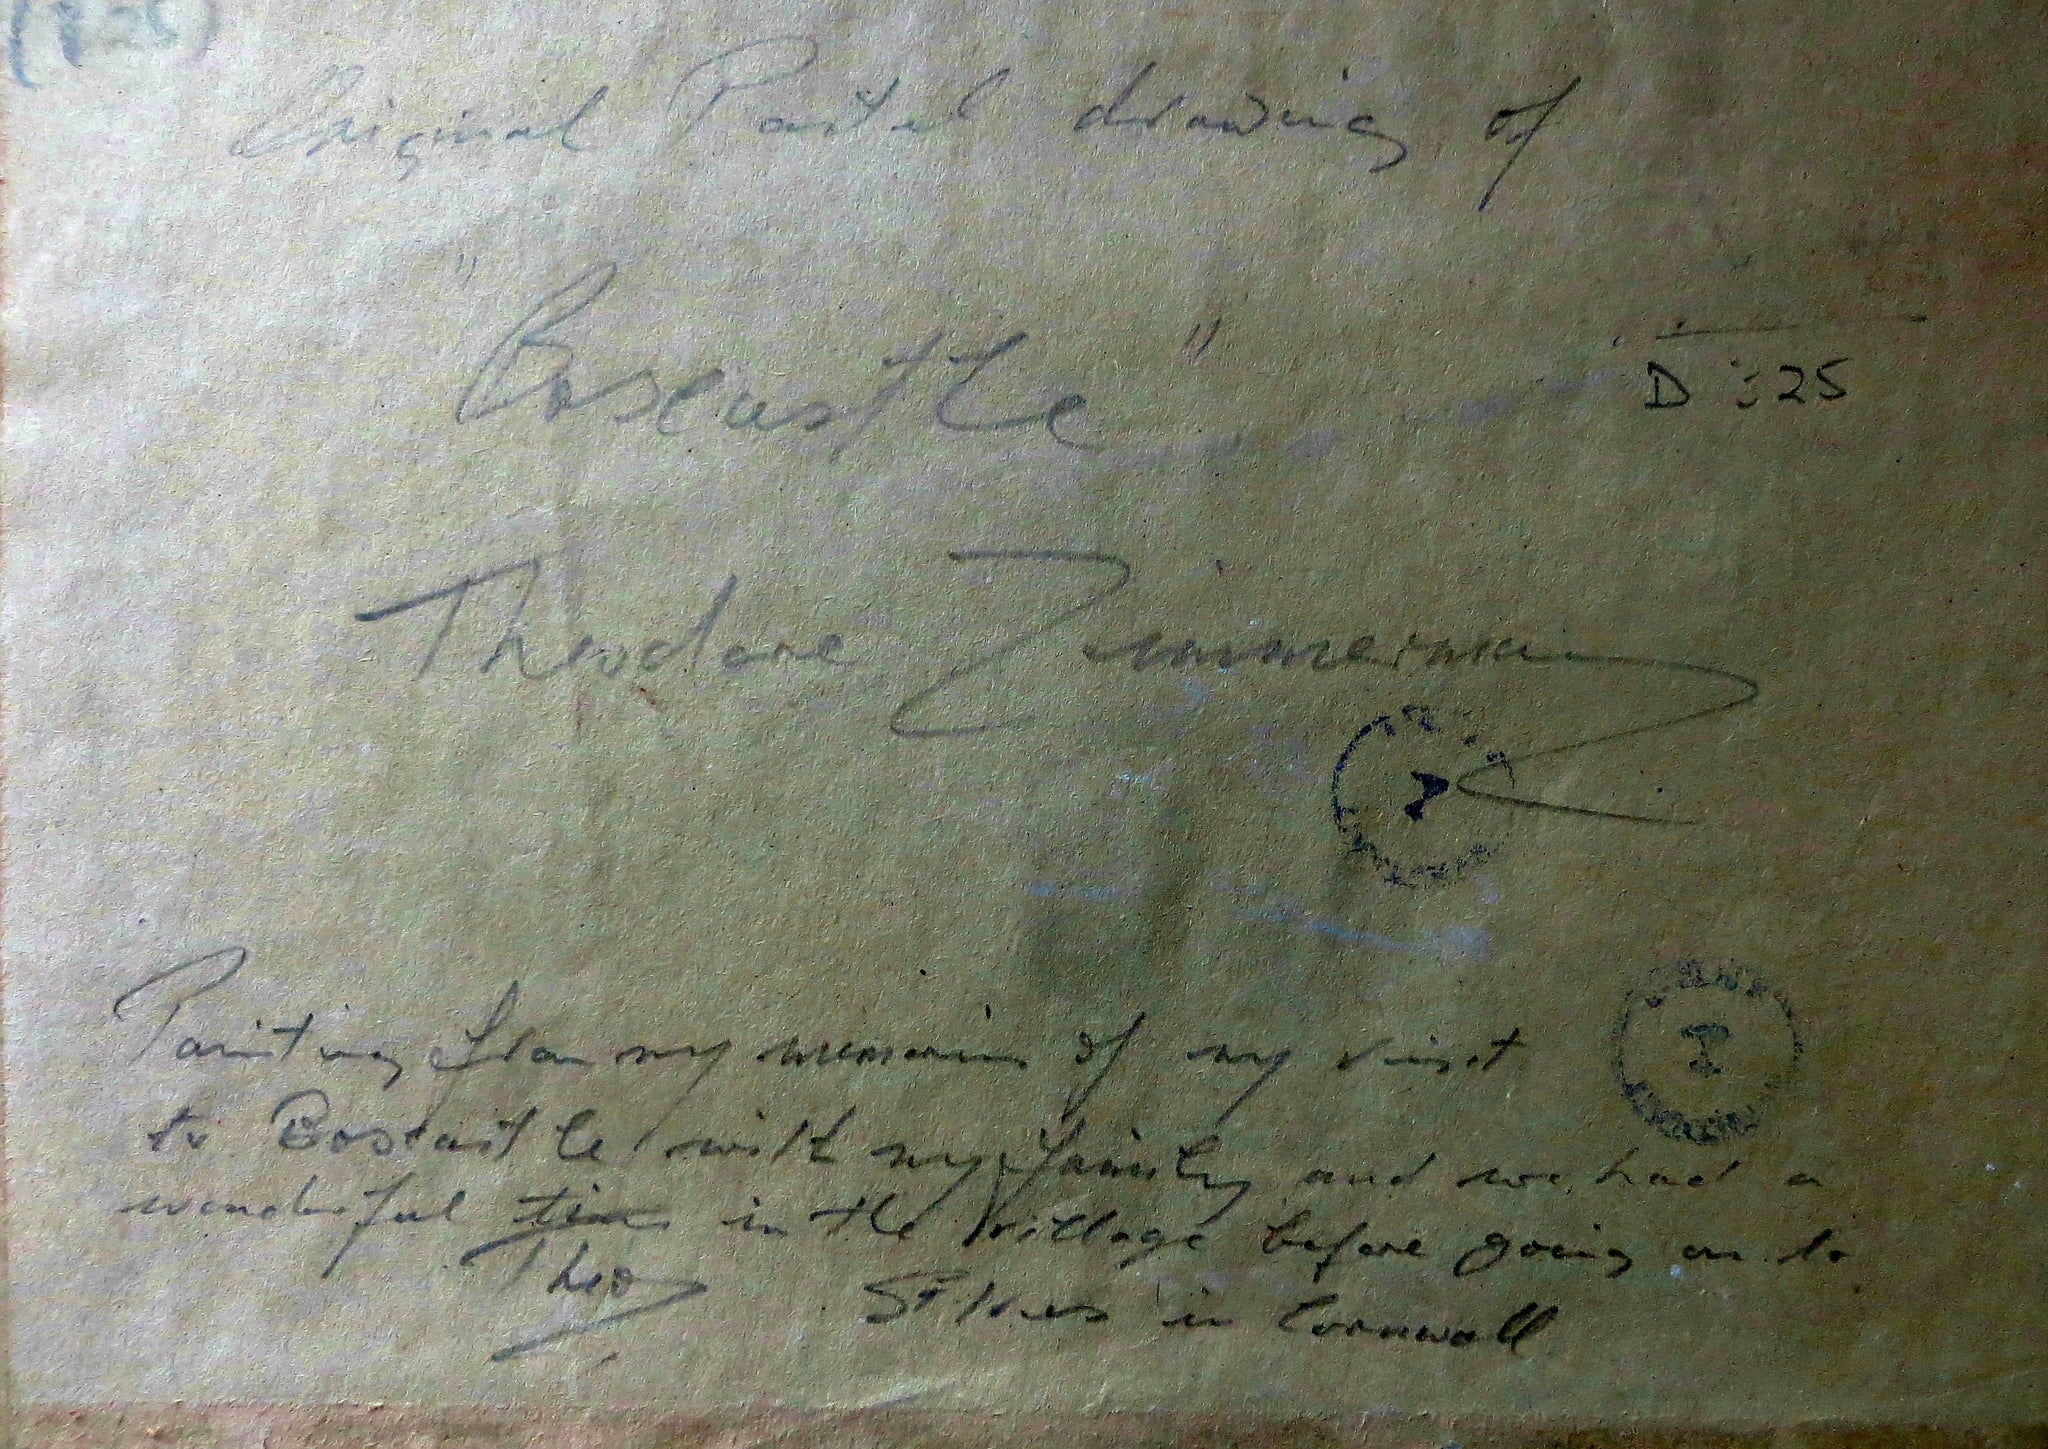 Original Pastel drawing of
"Boscastle"
D :25
Theodore Zimmerman
Painting from my memories of my visit
to Boscastle with my family and we had a
wonderful time in the village before going on to
Theo St Ives in Cornwall